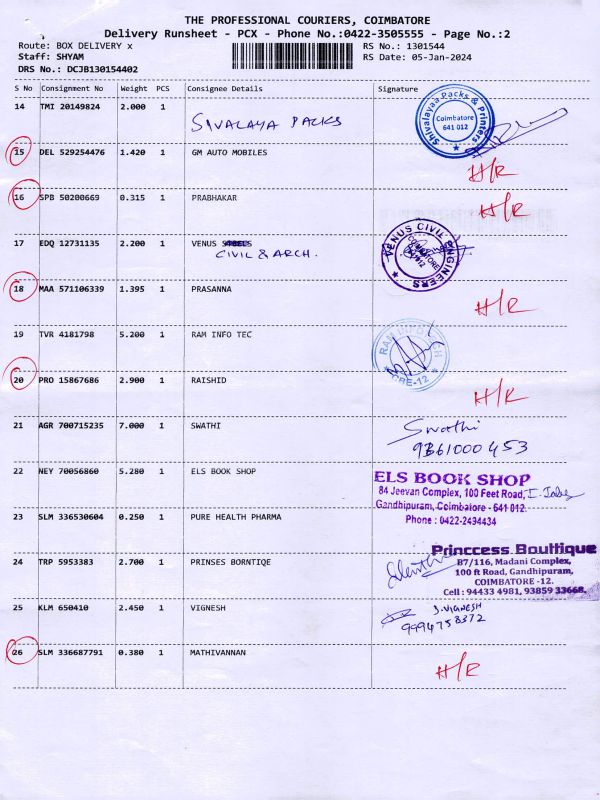 THE PROFESSIONAL COURIERS, COIMBATORE
Delivery Runsheet - PCX - Phone No.:0422-3505555 - Page No.:2
Route: BOX DELIVERY x
RS No.: 1301544
Staff: SHYAM
RS Date: 05-Jan-2024
DRS No.: DCJB130154402
S No Consignment No Weight PCS Consignee Details Signature
14 TMI 20149824 2.000 1
SIVALAYA PACKS
Shivalayaa Packs & Printers
Coimbatore
641 012
15 DEL 529254476 1.420 1 GM AUTO MOBILES
H/R
16 SPB 50200669 0.315 1 PRABHAKAR
H/R
17 EDQ 12731135 2.200 1 VENUS
CIVIL & ARCH.
VENUS CIVIL ENGINEERS
COIMBATORE
18 MAA 571106339 1.395 1 PRASANNA
H/R
19 TVR 4181798 5.200 1 RAM INFO TEC
RAM INFO TECH
CBE-12
20 PRO 15867686 2.900 1 RAISHID
H/R
21 AGR 700715235 7.000 1 SWATHI
Swathi
9361000453
22 NEY 70056860 5.280 1 ELS BOOK SHOP
ELS BOOK SHOP
84 Jeevan Complex, 100 Feet Road,
Gandhipuram, Coimbatore - 641 012.
Phone : 0422-2494434
23 SLM 336530604 0.250 1 PURE HEALTH PHARMA
24 TRP 5953383 2.700 1 PRINSES BORNTIQE
Princcess Bouttique
B7/116, Madani Complex,
100 ft Road, Gandhipuram,
COIMBATORE -12.
Cell : 94433 4981, 93859 33668.
25 KLM 650410 2.450 1 VIGNESH
J. VIGNESH
9994758372
26 SLM 336687791 0.380 1 MATHIVANNAN
H/R